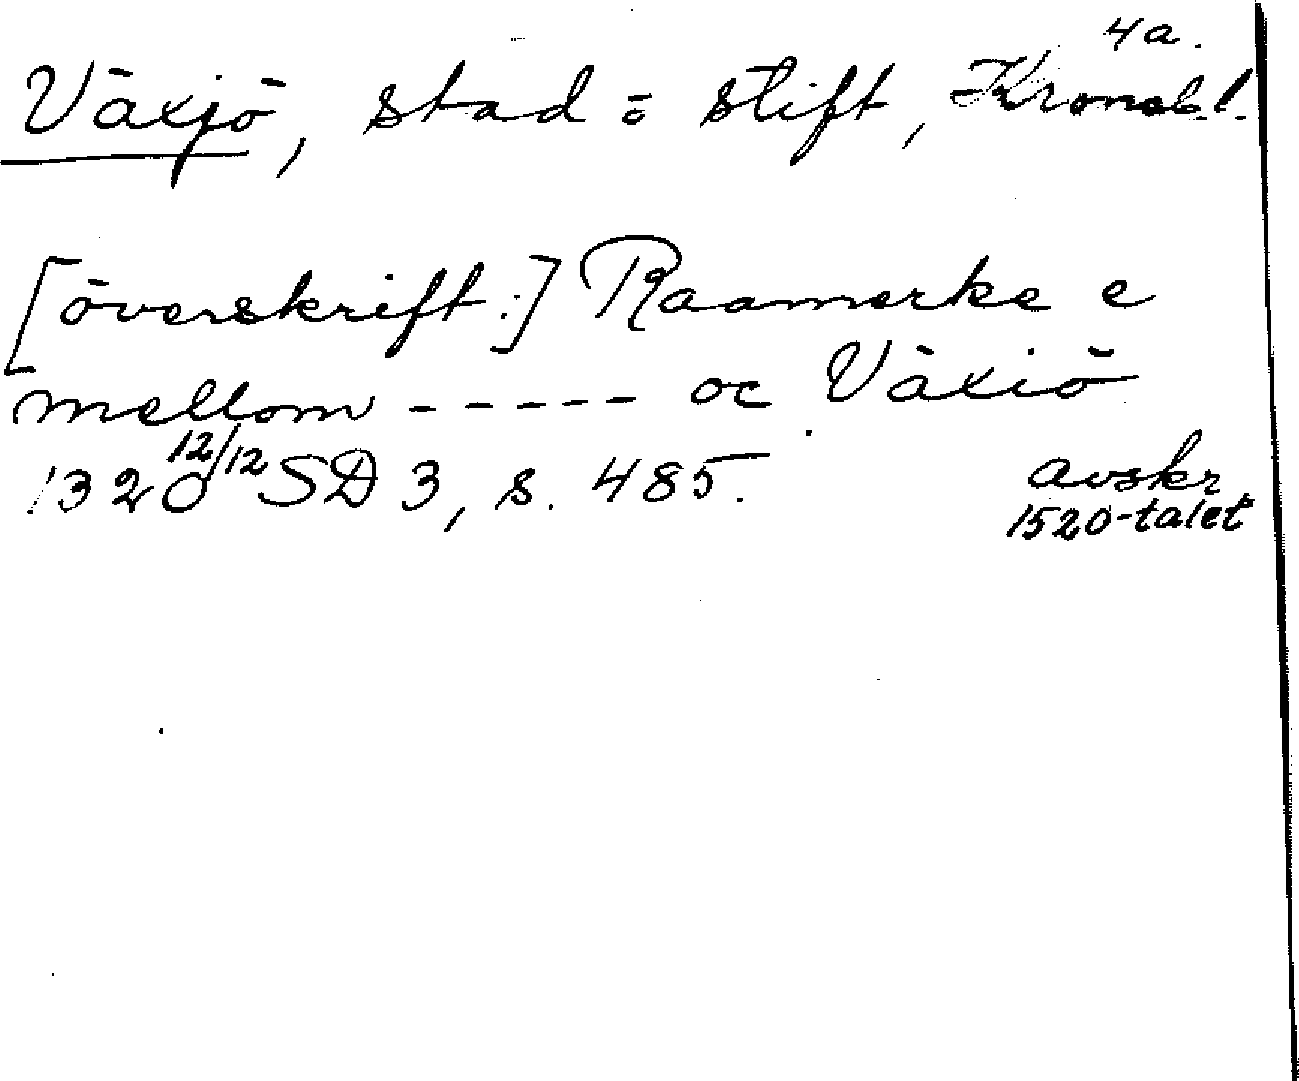 4a.
Växjö, stad o. stift, Kronob.l.
[överskrift:] Raamerke e
mellom ----- oc Växiö
1320 12/12 SD 3, s. 485.
avskr
1520-talet